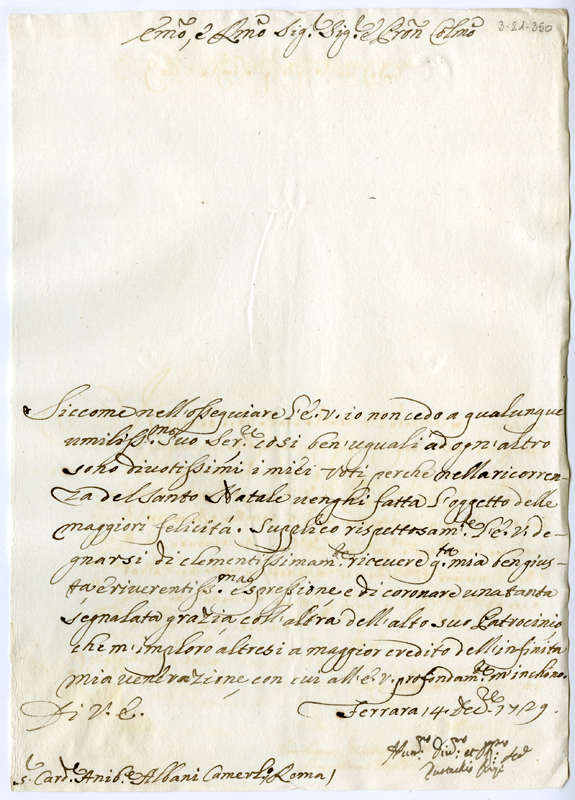 3-21-350
Emo, e Rmo Sigr. Sigr. e Pron Colmo
Siccome nell'ossequiare l'E. V. io non cedo a qualunque
umiliss.mo suo Ser.re così ben' uguali ad ogn' altro
sono divotissimi i miei voti perche nella ricorren-
za del Santo Natale venghi fatta l'oggetto delle
maggiori felicità. Supplico rispettosam.te l'E. V. de-
gnarsi di clementissimam.te ricevere q.ta mia ben gius-
ta è riverentiss.ma espressione e di coronare una tanta
segnalata grazia coll' altra dell' alto suo Patrocinio
che m'imploro altresi a maggior credito dell' infinita
mia venerazione con cui all' E. V. profondam.te m'inchino.
Di V. E. Ferrara 14. Dec.re 1729.
Hum.mo Div.mo et
Eustachio
S.r Card. Anib.e Albani Camerl.o Roma